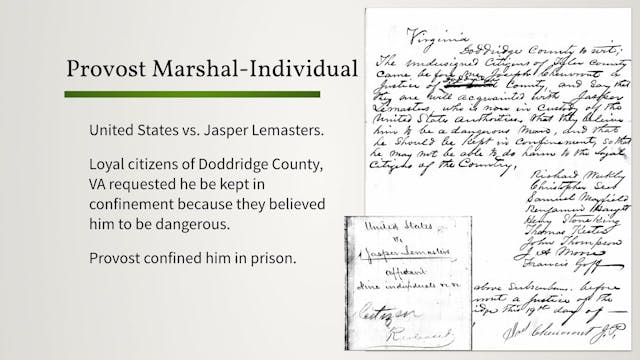 Provost Marshal-Individual
United States vs. Jasper Lemasters.
Loyal citizens of Doddridge County,
VA requested he be kept in
confinement because they believed
him to be dangerous.
Provost confined him in prison.
Virginia
Doddridge County to wit;
The undesigned Citizens of Tyler County
came before me Joseph Cheuvront a
Justice of County, and say that
they are well acquainted with Jasper
Lemasters, who is now in Custody of the
United State authorities, that they believe
him to be a dangerous man, and that
he should be kept in Confinement, so that
he may not be able to do harm to the loyal
Citizens of the Country,
Richard
Christopher
Samuel Mayfield
Benjamin Haught
Henry Stoneking
Thomas
John Thompson
J A Moore
Francis Goff
above Subscribers. before
a Justice of the
this 19th day of
Cheuvront J.P.
United States
vs
Jasper Lemasters
affidavit
nine individuals
Citizen